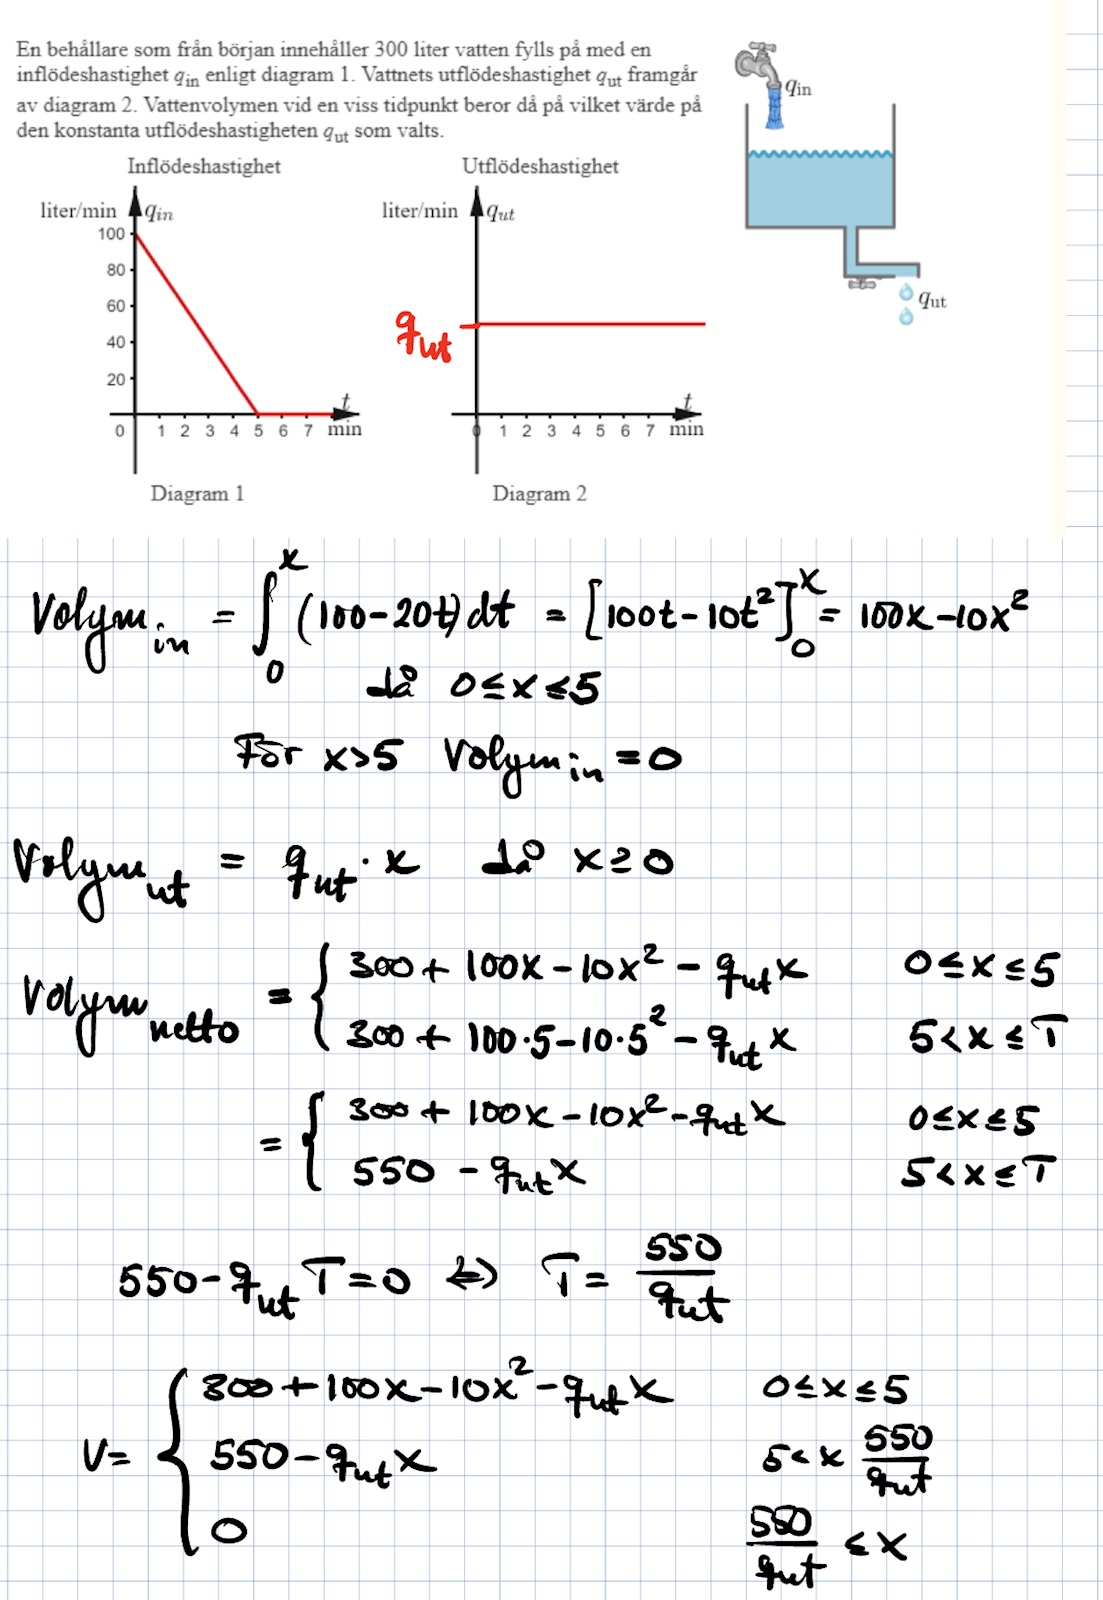 En behållare som från början innehåller 300 liter vatten fylls på med en
inflödeshastighet q_in enligt diagram 1. Vattnets utflödeshastighet q_ut framgår
av diagram 2. Vattenvolymen vid en viss tidpunkt beror då på vilket värde på
den konstanta utflödeshastigheten q_ut som valts.
q_in
q_ut
Inflödeshastighet
liter/min q_in
100
80
60
40
20
0 1 2 3 4 5 6 7 t min
Diagram 1
Utflödeshastighet
liter/min q_ut
q_ut
0 1 2 3 4 5 6 7 t min
Diagram 2
Volym_in = ∫_0^x (100-20t)dt = [100t-10t²]_0^x = 100x-10x²
då 0≤x≤5
För x>5 Volym_in = 0
Volym_ut = q_ut · x då x≥0
Volym_netto = { 300 + 100x - 10x² - q_ut x 0≤x≤5
300 + 100·5 - 10·5² - q_ut x 5<x≤T
= { 300 + 100x - 10x² - q_ut x 0≤x≤5
550 - q_ut x 5<x≤T
550 - q_ut T = 0 ⇔ T = 550/q_ut
V = { 300 + 100x - 10x² - q_ut x 0≤x≤5
550 - q_ut x 5<x 550/q_ut
0 550/q_ut ≤ x